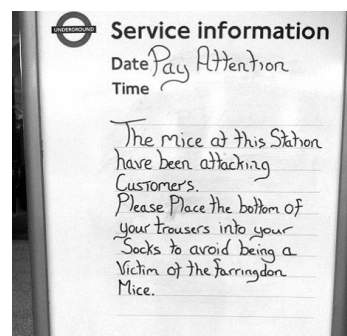 UNDERGROUND
Service information
Date Pay Attention
Time
The mice at this Station
have been attacking
Customer's.
Please Place the bottom of
your trousers into your
Socks to avoid being a
Victim of the farringdon
Mice.